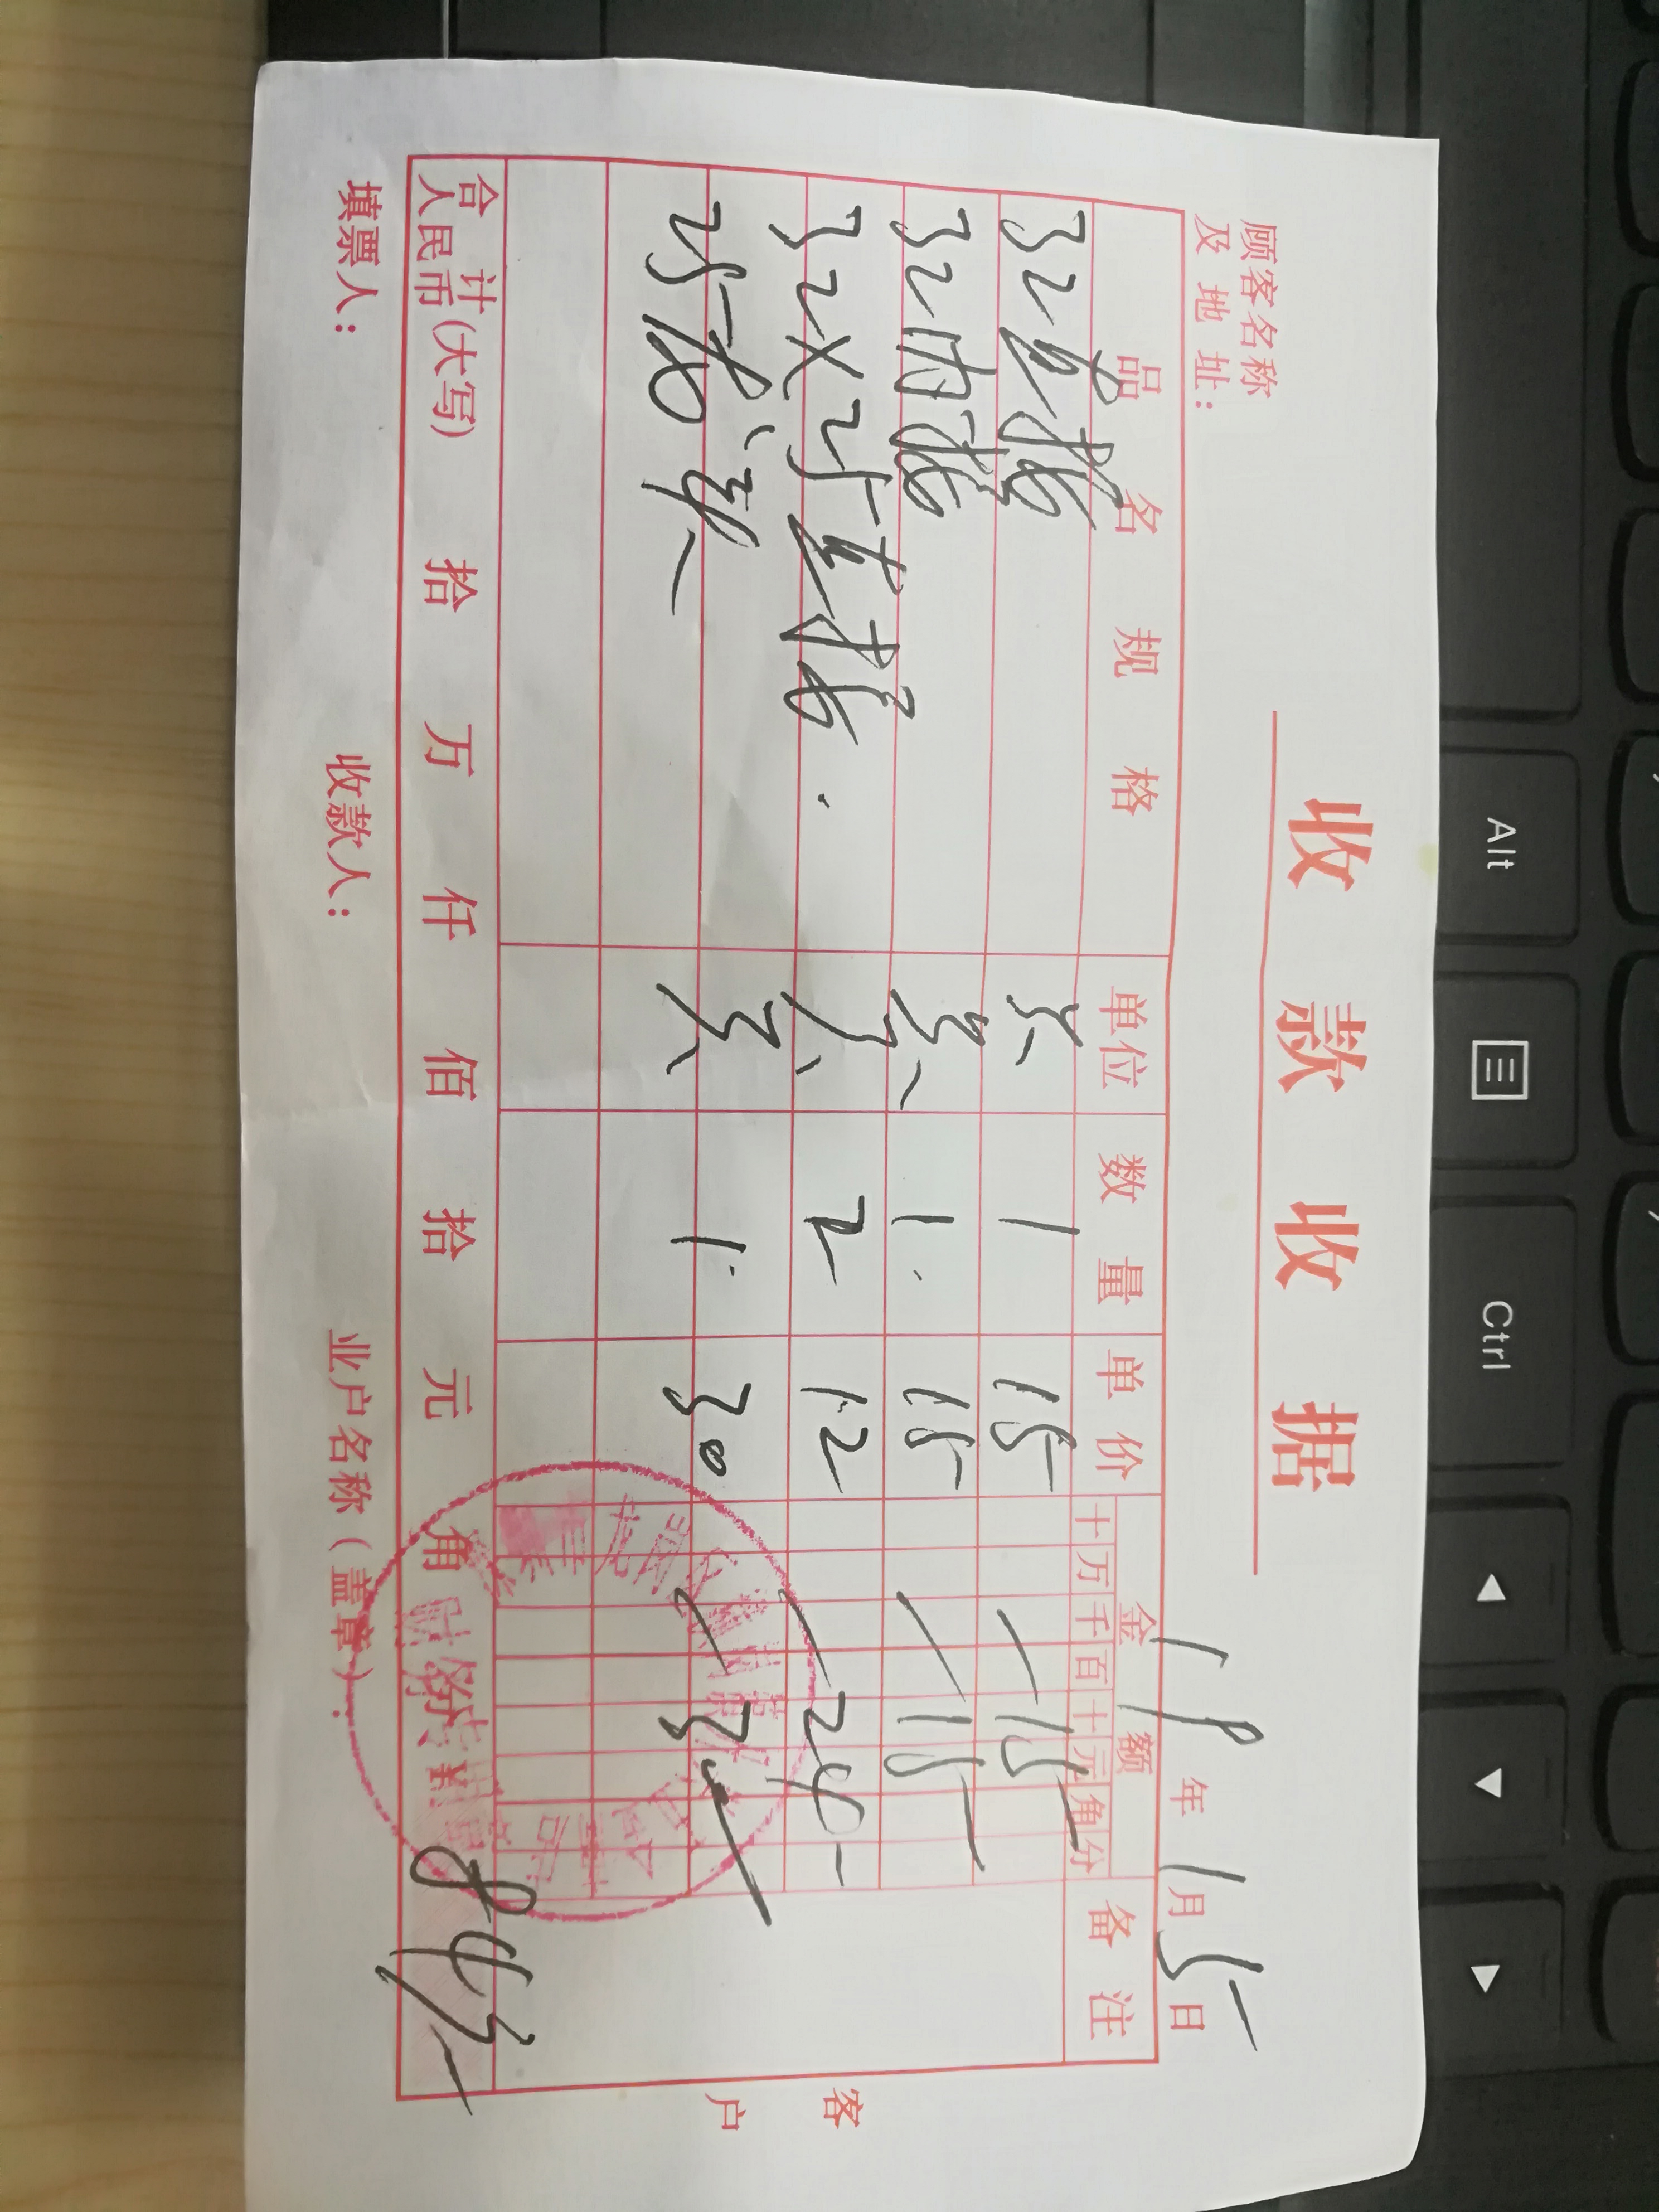 Alt Ctrl
收款收据
顾客名称
及地址:
19年1月5日
品名规格 单位 数量 单价 金额 备注
十万千百十元角分
32直接 只 1 15 15
32内接 只 1 15 15
32X25直接 只 2 12 24
25龙头 只 1 30 30
客户
合计人民币(大写) 拾 万 仟 佰 拾 元 角 分 ¥ 84元
财务专用章
填票人: 收款人: 业户名称(盖章):